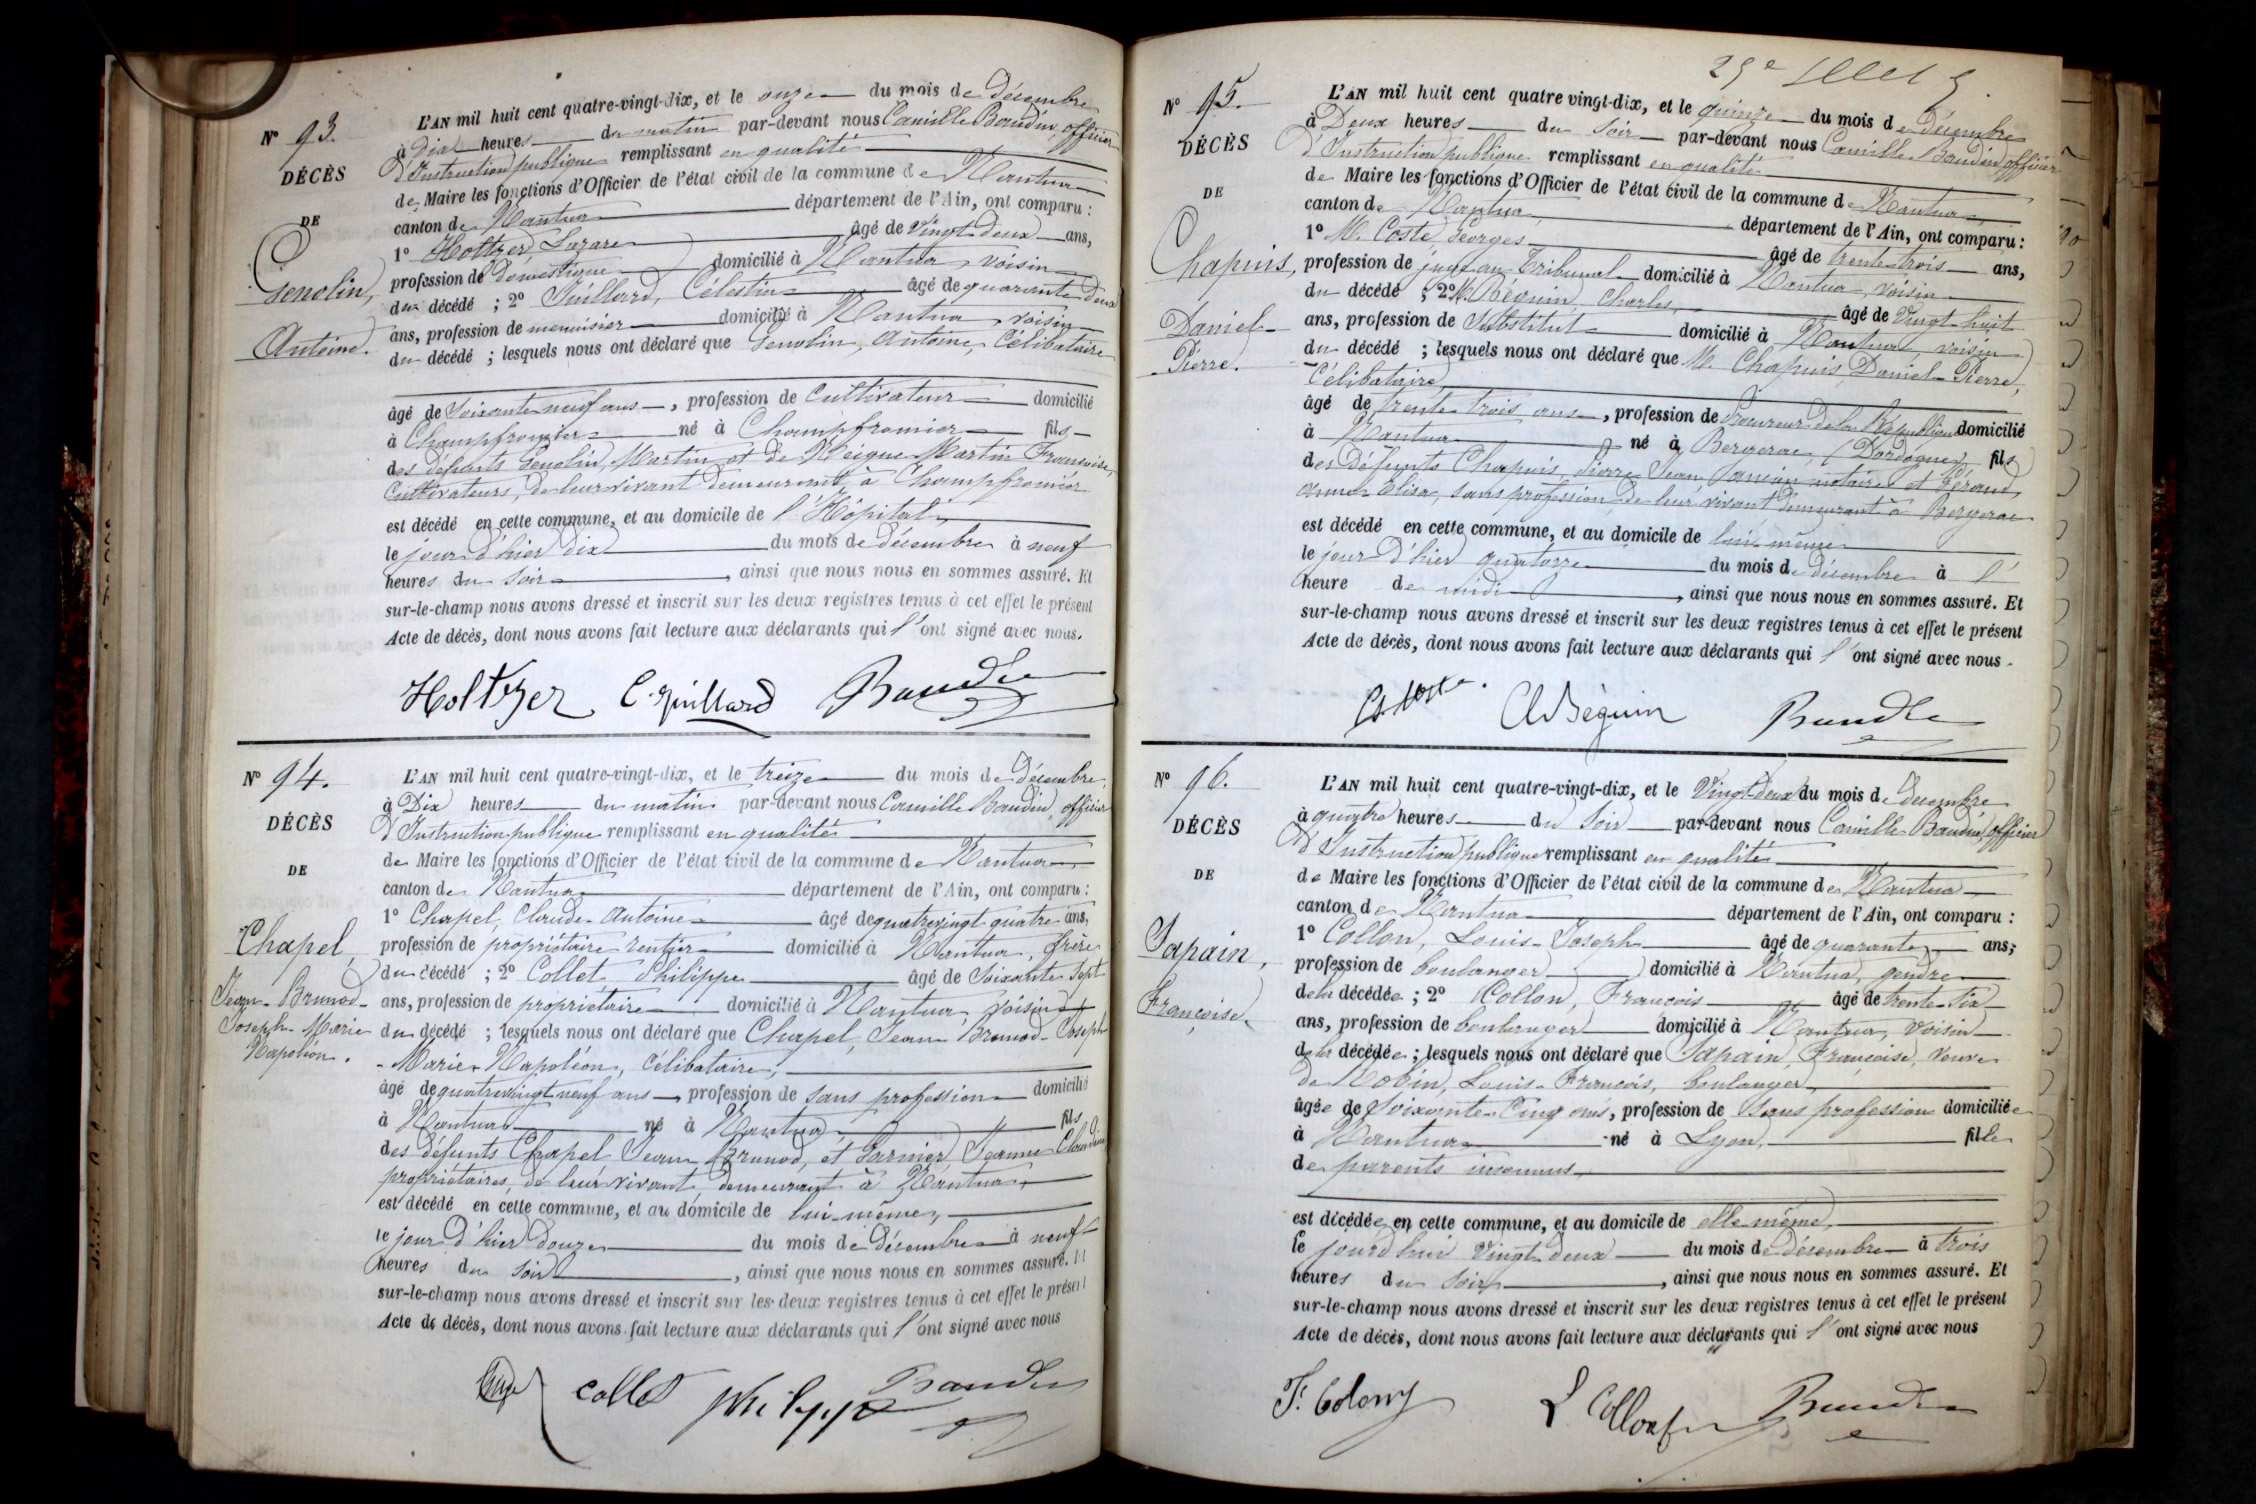 N° 93.
DÉCÈS
DE
Genolin,
Antoine.
L'AN mil huit cent quatre-vingt-dix, et le onze du mois de Décembre
à Dix heures du matin par-devant nous Camille Baudin, officier
d'Instruction publique remplissant en qualité
de Maire les fonctions d'Officier de l'état civil de la commune de Nantua
canton de Nantua département de l'Ain, ont comparu :
1° Holtzer, Lazare âgé de Vingt-deux ans,
profession de Domestique domicilié à Nantua, voisin
du décédé ; 2° Juillard, Célestin âgé de quarante deux
ans, profession de menuisier domicilié à Nantua voisin
du décédé ; lesquels nous ont déclaré que Genolin, Antoine, Célibataire
âgé de Soixante neuf ans, profession de Cultivateur domicilié
à Champfromier né à Champfromier fils
des défunts Genolin, Martin et de Martin Françoise,
Cultivateurs, de leur vivant demeurant à Champfromier
est décédé en cette commune, et au domicile de l'Hôpital,
le jour d'hier dix du mois de décembre à neuf
heures du soir, ainsi que nous nous en sommes assuré. Et
sur-le-champ nous avons dressé et inscrit sur les deux registres tenus à cet effet le présent
Acte de décès, dont nous avons fait lecture aux déclarants qui l'ont signé avec nous.
Holtzer C. Juillard Baudin
N° 94.
DÉCÈS
DE
Chapel,
Jean-Brunod-
Joseph-Marie
Napoléon.
L'AN mil huit cent quatre-vingt-dix, et le treize du mois de Décembre
à Dix heures du matin par-devant nous Camille Baudin, officier
d'Instruction publique remplissant en qualité
de Maire les fonctions d'Officier de l'état civil de la commune de Nantua
canton de Nantua département de l'Ain, ont comparu :
1° Chapel, Claude-Antoine âgé de quatrevingt quatre ans,
profession de propriétaire rentier domicilié à Nantua, frère
du décédé ; 2° Collet Philippe âgé de Soixante Sept
ans, profession de propriétaire domicilié à Nantua, voisin
du décédé ; lesquels nous ont déclaré que Chapel, Jean-Brunod-Joseph
-Marie-Napoléon, Célibataire,
âgé de quatrevingt neuf ans, profession de sans profession domicilié
à Nantua né à Nantua fils
des défunts Chapel Jean Brunod, et Garnier Jeanne Claudine
propriétaires, de leur vivant demeurant à Nantua,
est décédé en cette commune, et au domicile de lui-même,
le jour d'hier douze du mois de Décembre à neuf
heures du soir, ainsi que nous nous en sommes assuré. Et
sur-le-champ nous avons dressé et inscrit sur les deux registres tenus à cet effet le présent
Acte de décès, dont nous avons fait lecture aux déclarants qui l'ont signé avec nous
collet philippe Baudin
N° 95.
DÉCÈS
DE
Chapuis,
Daniel-
Pierre.
L'AN mil huit cent quatre vingt-dix, et le quinze du mois de Décembre
à Deux heures du soir par-devant nous Camille Baudin, officier
d'Instruction publique remplissant en qualité
de Maire les fonctions d'Officier de l'état civil de la commune de Nantua
canton de Nantua département de l'Ain, ont comparu :
1° M. Coste, Georges âgé de trente-trois ans,
profession de juge au Tribunal domicilié à Nantua, voisin
du décédé ; 2° M. Béguin, Charles, âgé de Vingt-huit
ans, profession de Substitut domicilié à Nantua, voisin
du décédé ; lesquels nous ont déclaré que M. Chapuis, Daniel-Pierre,
Célibataire
âgé de trente trois ans, profession de Procureur de la République domicilié
à Nantua né à Bergerac, (Dordogne) fils
des Défunts Chapuis Pierre Jean, ancien notaire et Géraud,
Anne-Elisa, sans profession, de leur vivant demeurant à Bergerac
est décédé en cette commune, et au domicile de lui-même
le jour d'hier quatorze du mois de décembre à l'
heure de midi, ainsi que nous nous en sommes assuré. Et
sur-le-champ nous avons dressé et inscrit sur les deux registres tenus à cet effet le présent
Acte de décès, dont nous avons fait lecture aux déclarants qui l'ont signé avec nous.
Ch Béguin Baudin
N° 96.
DÉCÈS
DE
Sapain,
Françoise.
L'AN mil huit cent quatre-vingt-dix, et le Vingt-deux du mois de Décembre
à quatre heures du soir par-devant nous Camille Baudin, officier
d'Instruction publique remplissant en qualité
de Maire les fonctions d'Officier de l'état civil de la commune de Nantua
canton de Nantua département de l'Ain, ont comparu :
1° Collon, Louis-Joseph âgé de quarante ans;
profession de boulanger domicilié à Nantua, gendre
de la décédée ; 2° Collon, François âgé de trente-six
ans, profession de boulanger domicilié à Nantua, voisin
de la décédée ; lesquels nous ont déclaré que Sapain, Françoise, veuve
de Robin, Louis-François, boulanger,
âgée de Soixante-Cinq ans, profession de sans profession domiciliée
à Nantua né à Lyon, fille
de parents inconnus,
est décédée en cette commune, et au domicile de elle-même,
le jourd'hui Vingt deux du mois de décembre à trois
heures du soir, ainsi que nous nous en sommes assuré. Et
sur-le-champ nous avons dressé et inscrit sur les deux registres tenus à cet effet le présent
Acte de décès, dont nous avons fait lecture aux déclarants qui l'ont signé avec nous
Baudin